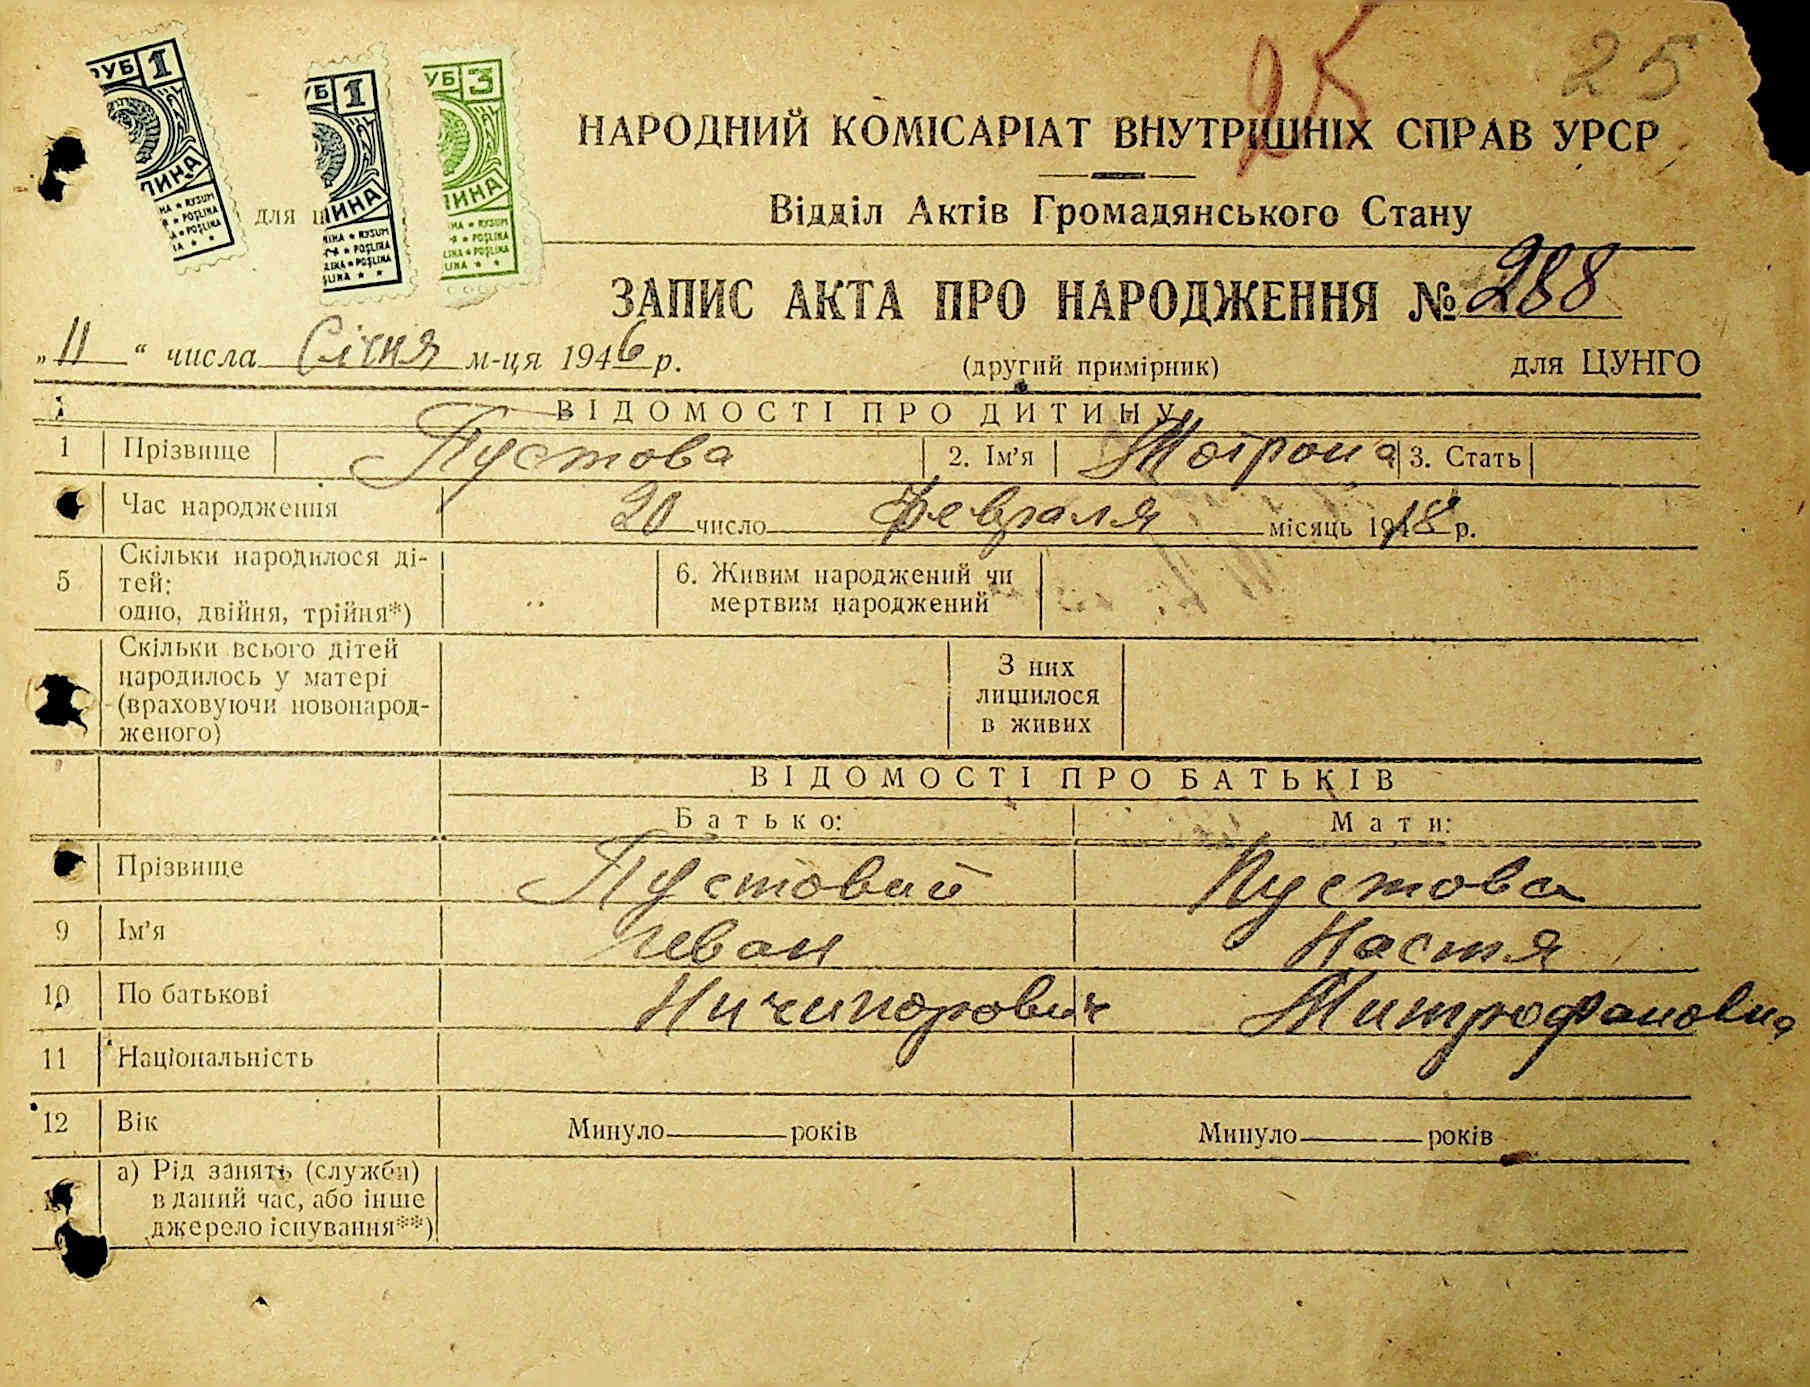 25
25
РУБ 1
УБ 1
УБ 3
ЛИНА
ЛИНА
ЛИНА
НАРОДНИЙ КОМІСАРІАТ ВНУТРІШНІХ СПРАВ УРСР
для
Відділ Актів Громадянського Стану
ЗАПИС АКТА ПРО НАРОДЖЕННЯ № 288
„11“ числа Січня м-ця 1946 р. (другий примірник) для ЦУНГО
ВІДОМОСТІ ПРО ДИТИНУ
1 Прізвище Пустова 2. Ім'я Мотрона 3. Стать
Час народження 20 число Февраля місяць 1918 р.
5 Скільки народилося ді-
тей:
одно, двійня, трійня*)
6. Живим народжений чи
мертвим народжений
Скільки всього дітей
народилось у матері
(враховуючи новонарод-
женого)
З них
лишилося
в живих
ВІДОМОСТІ ПРО БАТЬКІВ
Батько: Мати:
Прізвище Пустовий Пустова
9 Ім'я Иван Настя
10 По батькові Ничипорович Митрофановна
11 Національність
12 Вік Минуло років Минуло років
а) Рід занять (служби)
в даний час, або інше
джерело існування**)